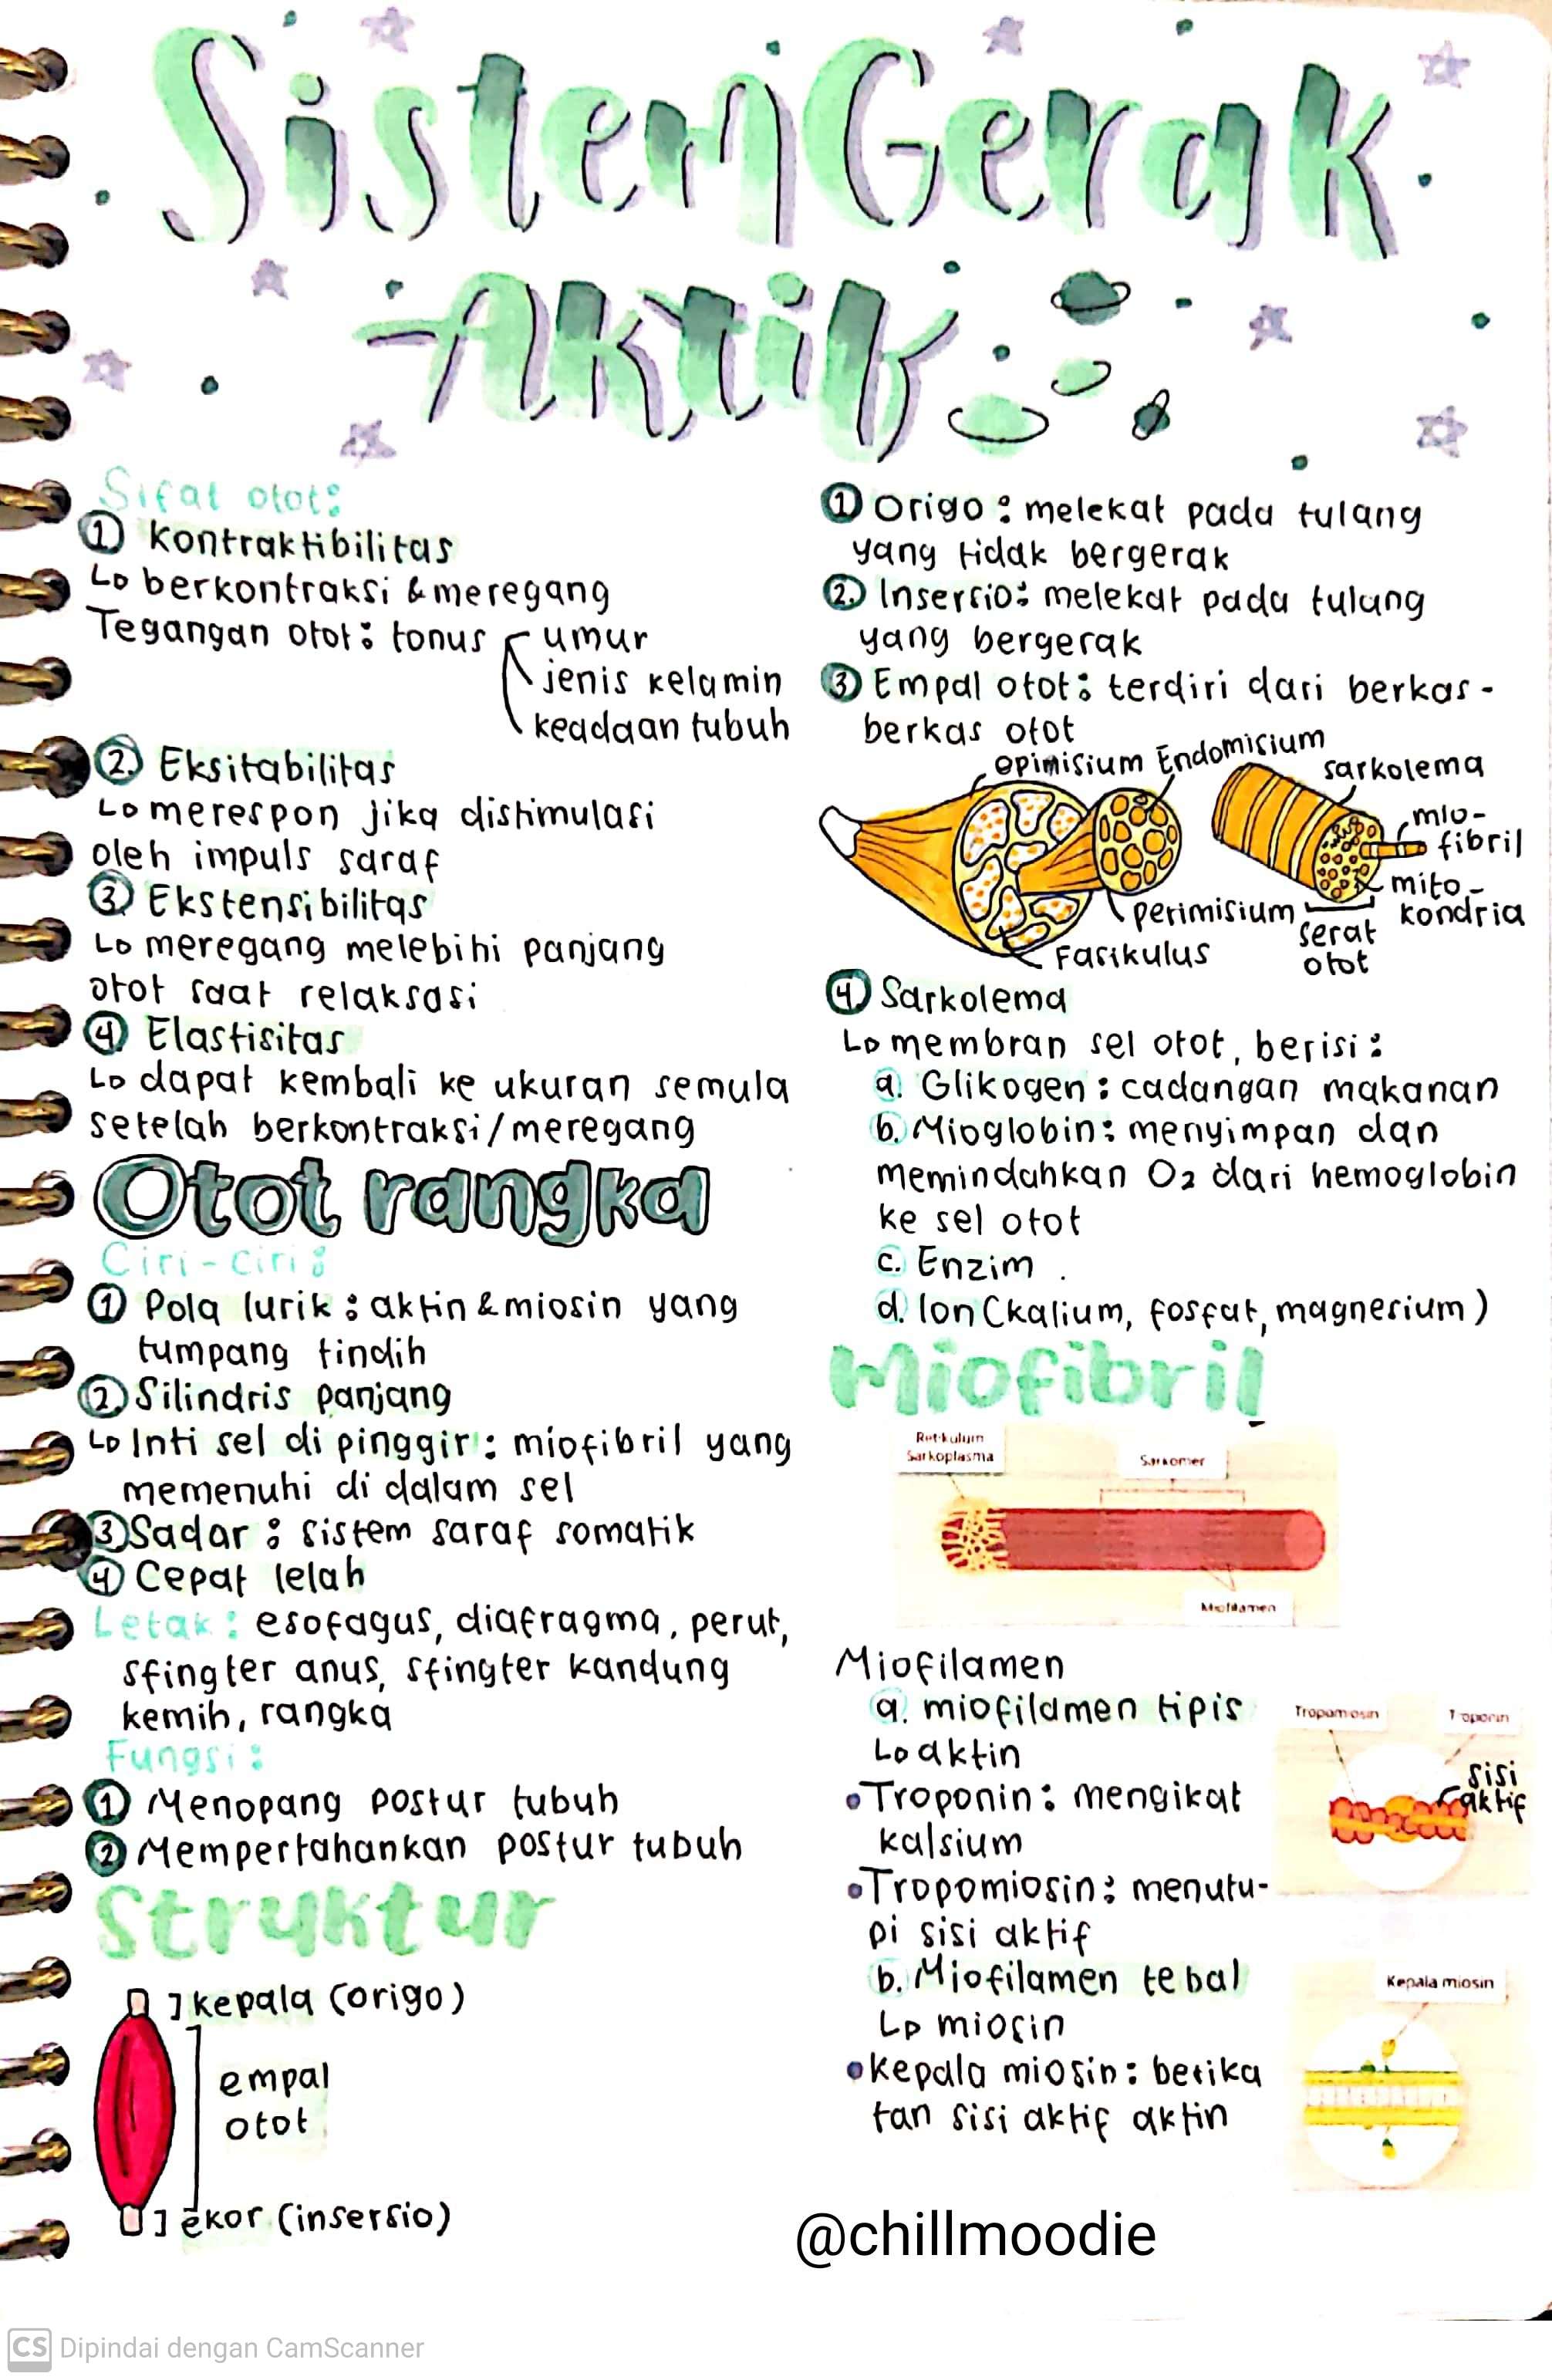 Sistem Gerak
Aktif
Sifat otot:
① Kontraktibilitas
↳ berkontraksi & meregang
Tegangan otot: tonus
umur
jenis kelamin
keadaan tubuh
②. Eksitabilitas
↳ merespon jika distimulasi
oleh impuls saraf
③ Ekstensibilitas
↳ meregang melebihi panjang
otot saat relaksasi
④ Elastisitas
↳ dapat kembali ke ukuran semula
setelah berkontraksi/meregang
Otot rangka
Ciri-ciri:
① Pola lurik: aktin & miosin yang
tumpang tindih
②. Silindris panjang
↳ Inti sel di pinggir: miofibril yang
memenuhi di dalam sel
③ Sadar: sistem saraf somatik
④ Cepat lelah
Letak: esofagus, diafragma, perut,
sfingter anus, sfingter kandung
kemih, rangka
Fungsi:
① Menopang postur tubuh
② Mempertahankan postur tubuh
Struktur
kepala (origo)
empal
otot
ekor (insersio)
① Origo: melekat pada tulang
yang tidak bergerak
②. Insersio: melekat pada tulang
yang bergerak
③ Empal otot: terdiri dari berkas-
berkas otot
epimisium
Endomisium
sarkolema
mio-
fibril
mito-
kondria
perimisium
serat
otot
Fasikulus
④. Sarkolema
↳ membran sel otot, berisi:
a. Glikogen: cadangan makanan
b. Mioglobin: menyimpan dan
memindahkan O2 dari hemoglobin
ke sel otot
c. Enzim.
d. Ion (kalium, fosfat, magnesium)
Miofibril
Retikulum
Sarkoplasma
Sarkomer
Miofilamen
Miofilamen
a. miofilamen tipis
↳ aktin
• Troponin: mengikat
kalsium
• Tropomiosin: menutu-
pi sisi aktif
Tropomiosin
Troponin
sisi
aktif
b. Miofilamen tebal
↳ miosin
• kepala miosin: berika
tan sisi aktif aktin
Kepala miosin
@chillmoodie
CS Dipindai dengan CamScanner